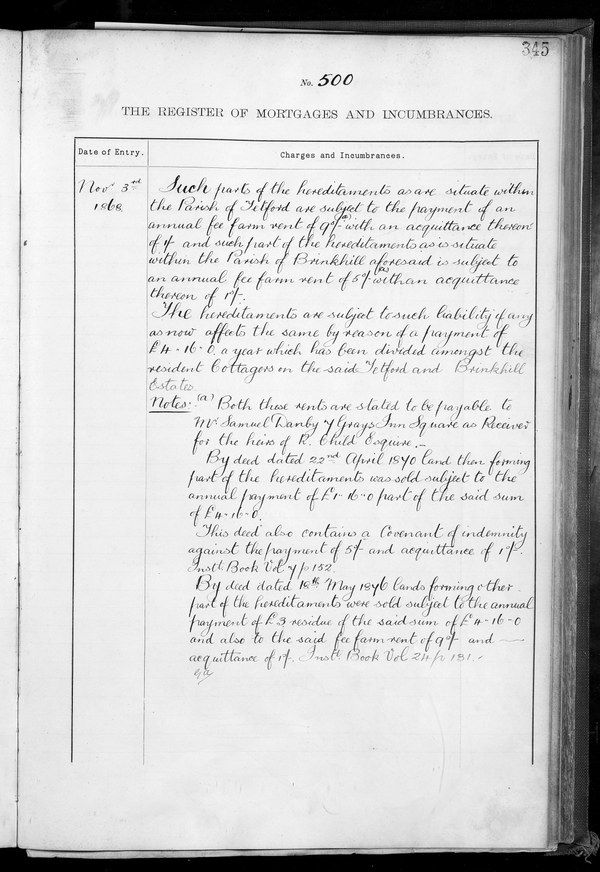 345
No. 500
THE REGISTER OF MORTGAGES AND INCUMBRANCES.
Date of Entry.
Charges and Incumbrances.
Novr 3rd
1868
Such parts of the hereditaments as are situate within
the Parish of Tetford are subject to the payment of an
annual fee farm rent of 9d(a) with an acquittance thereon
of 1d and such part of the hereditaments as is situate
within the Parish of Brinkhill aforesaid is subject to
an annual fee farm rent of 5d(a) with an acquittance
thereon of 1d.
The hereditaments are subject to such liability if any
as now affects the same by reason of a payment of
£4-16-0 a year which has been divided amongst the
resident Cottagers on the said Tetford and Brinkhill
Estates
Notes: (a) Both these rents are stated to be payable to
Mr Samuel Danby of Grays Inn Square as Receiver
for the heirs of R. Child Esquire.-
By deed dated 22nd April 1870 land then forming
part of the hereditaments was sold subject to the
annual payment of £1-16-0 part of the said sum
of £4-16-0.
This deed also contains a Covenant of indemnity
against the payment of 5d and acquittance of 1d.
Instt Book Vol 7 p 152.
By deed dated 18th May 1876 lands forming other
part of the hereditaments were sold subject to the annual
payment of £3 residue of the said sum of £4-16-0
and also to the said fee farm rent of 9d and
acquittance of 1d. Instt Book Vol 24 p 181.-